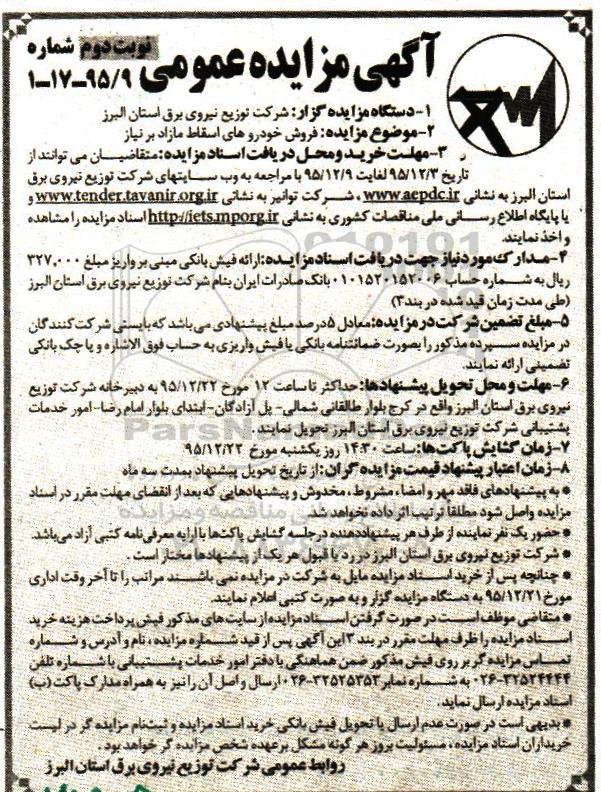 آگهی مزایده عمومی نوبت دوم شماره
۱-۱۷-۹۵/۹
۱-دستگاه مزایده گزار: شرکت توزیع نیروی برق استان البرز
۲-موضوع مزایده: فروش خودرو های اسقاط مازاد بر نیاز
۳-مهلت خرید و محل دریافت اسناد مزایده: متقاضیان می توانند از
تاریخ ۹۵/۱۲/۳ لغایت ۹۵/۱۲/۹ با مراجعه به وب سایتهای شرکت توزیع نیروی برق
استان البرز به نشانی www.aepdc.ir ، شرکت توانیر به نشانی www.tender.tavanir.org.ir و
یا پایگاه اطلاع رسانی ملی مناقصات کشوری به نشانی http://iets.mporg.ir اسناد مزایده را مشاهده
و اخذ نمایند.
۴-مدارک مورد نیاز جهت دریافت اسناد مزایده: ارائه فیش بانکی مبنی بر واریز مبلغ ۳۲۷,۰۰۰
ریال به شماره حساب ۰۱۰۱۵۲۰۱۵۲۰۰۶ بانک صادرات ایران بنام شرکت توزیع نیروی برق استان البرز
(طی مدت زمان قید شده در بند۳)
۵-مبلغ تضمین شرکت در مزایده: معادل ۵درصد مبلغ پیشنهادی می باشد که بایستی شرکت کنندگان
در مزایده سپرده مذکور را بصورت ضمانتنامه بانکی یا فیش واریزی به حساب فوق الاشاره و یا چک بانکی
تضمینی ارائه نمایند.
۶-مهلت و محل تحویل پیشنهادها: حداکثر تا ساعت ۱۲ مورخ ۹۵/۱۲/۲۲ به دبیرخانه شرکت توزیع
نیروی برق استان البرز واقع در کرج بلوار طالقانی شمالی- پل آزادگان- ابتدای بلوار امام رضا- امور خدمات
پشتیبانی شرکت توزیع نیروی برق استان البرز تحویل نمایند.
۷-زمان گشایش پاکت‌ها: ساعت ۱۴:۳۰ روز یکشنبه مورخ ۹۵/۱۲/۲۲
۸-زمان اعتبار پیشنهاد قیمت مزایده گران: از تاریخ تحویل پیشنهاد بمدت سه ماه
* به پیشنهادهای فاقد مهر و امضاء، مشروط ، مخدوش و پیشنهادهایی که بعد از انقضای مهلت مقرر در اسناد
مزایده واصل شود مطلقا ترتیب اثر داده نخواهد شد.
* حضور یک نفر نماینده از طرف هر پیشنهاددهنده در جلسه گشایش پاکت‌ها با ارایه معرفی‌نامه کتبی آزاد می‌باشد.
* شرکت توزیع نیروی برق استان البرز در رد یا قبول هر یک از پیشنهادها مختار است .
* چنانچه پس از خرید اسناد مزایده مایل به شرکت در مزایده نمی باشند مراتب را تا آخر وقت اداری
مورخ ۹۵/۱۲/۲۱ به دستگاه مزایده گزار و به صورت کتبی اعلام نمایند.
* متقاضی موظف است در صورت گرفتن اسناد مزایده از سایت های مذکور فیش پرداخت هزینه خرید
اسناد مزایده را ظرف مهلت مقرر در بند ۳ این آگهی پس از قید شماره مزایده ، نام و آدرس و شماره
تماس مزایده گر بر روی فیش مذکور ضمن هماهنگی با دفتر امور خدمات پشتیبانی با شماره تلفن
۰۲۶-۳۲۵۲۴۴۴۴ به شماره نمابر ۰۲۶-۳۲۵۲۵۳۵۳ ارسال و اصل آن را نیز به همراه مدارک پاکت (ب)
اسناد مزایده ارسال نماید.
* بدیهی است در صورت عدم ارسال یا تحویل فیش بانکی خرید اسناد مزایده و ثبت‌نام مزایده گر در لیست
خریداران اسناد مزایده ، مسئولیت بروز هر گونه مشکل بر عهده شخص مزایده گر خواهد بود .
روابط عمومی شرکت توزیع نیروی برق استان البرز